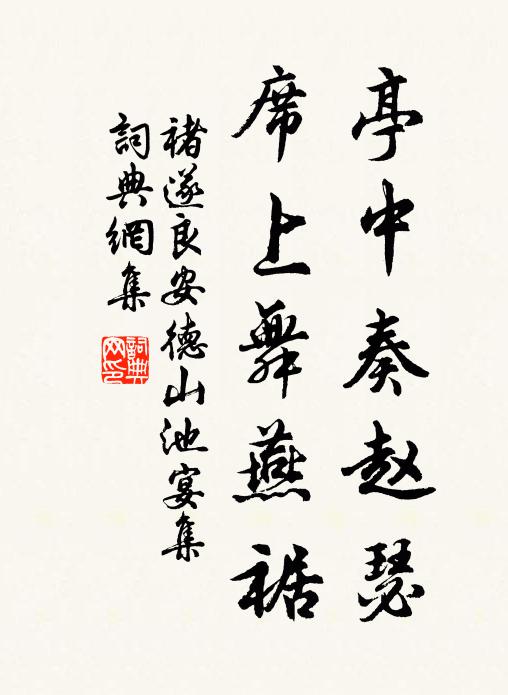 亭中奏赵瑟
席上舞燕裾
褚遂良安德山池宴集
詞典網集
詞典網印